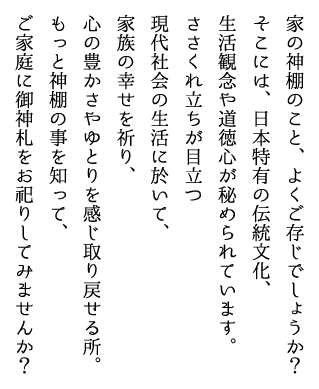 家の神棚のこと、よくご存じでしょうか?
そこには、日本特有の伝統文化、
生活観念や道徳心が秘められています。
ささくれ立ちが目立つ
現代社会の生活に於いて、
家族の幸せを祈り、
心の豊かさやゆとりを感じ取り戻せる所。
もっと神棚の事を知って、
ご家庭に御神札をお祀りしてみませんか?